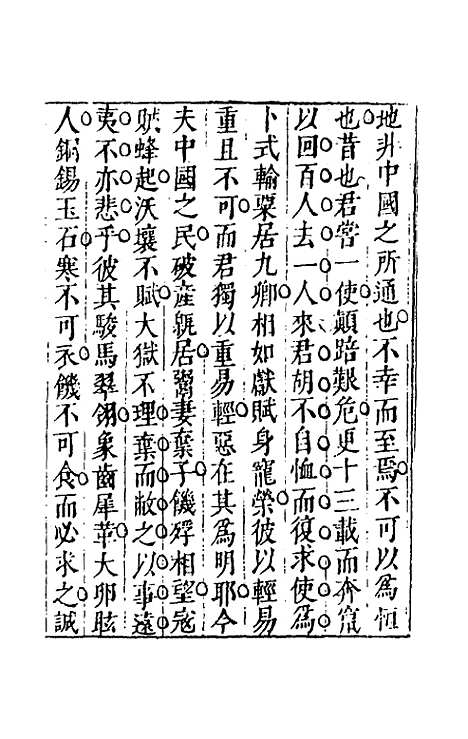 地非中國之所通也不幸而至焉不可以為恒
也昔也君嘗一使顛踣艱危更十三載而奔竄
以回百人去一人來君胡不自恤而復求使為
卜式輸粟居九卿相如獻賦身寵榮彼以輕易
重且不可而君獨以重易輕惡在其為明耶今
夫中國之民破産毀居鬻妻棄子饑殍相望宼
賊蜂起沃壤不賦大獄不理棄而敝之以事遠
夷不亦悲乎彼其駿馬翠翎象齒犀革大卵眩
人銅錫玉石寒不可衣饑不可食而必求之誠